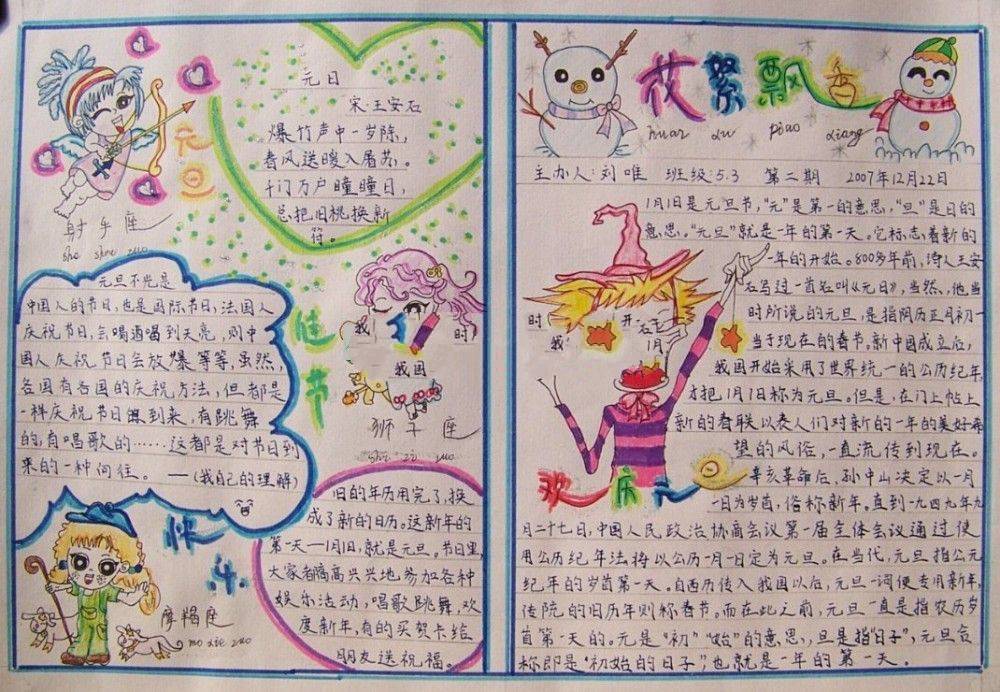 元旦
元日
宋 王安石
爆竹声中一岁除,
春风送暖入屠苏。
千门万户瞳瞳日,
总把旧桃换新
符。
射手座
she shou zuo
元旦不光是
中国人的节日,也是国际节日,法国人
庆祝节日,会喝酒喝到天亮,则中
国人庆祝节日会放爆等等,虽然
各国有各国的庆祝方法,但都是
一样庆祝节日的到来,有跳舞
的,有唱歌的……这都是对节日到
来的一种向往。——(我自己的理解)
佳节
狮子座
shi zi zuo
快乐
摩羯座
mo jie zuo
旧的年历用完了,换
成了新的日历。这新年的
第一天—1月1日,就是元旦。节日里,
大家都高高兴兴地参加各种
娱乐活动,唱歌跳舞,欢
度新年,有的买贺卡给
朋友送祝福。
花絮飘香
huar xu piao xiang
主办人:刘唯 班级:5.3 第二期 2007年12月22日
1月1日是元旦节,“元”是第一的意思,“旦”是日的
意思。“元旦”就是一年的第一天。它标志着新的
一年的开始。800多年前,诗人王安
石写过一首名叫《元日》,当然,他当
时所说的元旦,是指阴历正月初一
当于现在的春节。新中国成立后,
我国开始采用了世界统一的公历纪年,
才把1月1日称为元旦。但是,在门上帖上
新的春联以表人们对新的一年的美好希
望的风俗,一直流传到现在。
辛亥革命后,孙中山决定以一月
一日为岁首,俗称新年。直到一九四九年九
月二十七日,中国人民政治协商会议第一届全体会议通过使
用公历纪年法,将以公历一月一日定为元旦。在当代,元旦指公元
纪年的岁首第一天。自西历传入我国以后,元旦一词便专用新年,
传统的旧历年则称春节。而在此之前,元旦一直是指农历岁
首第一天的。元是“初”“始”的意思,旦是指“日子”,元旦合
称即是“初始的日子”,也就是一年的第一天。
欢庆元